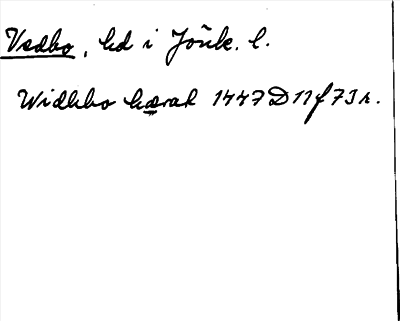 Vedbo, hd i Jönk. l.
Widhbo hærat 1447 D 11 f 73 r.